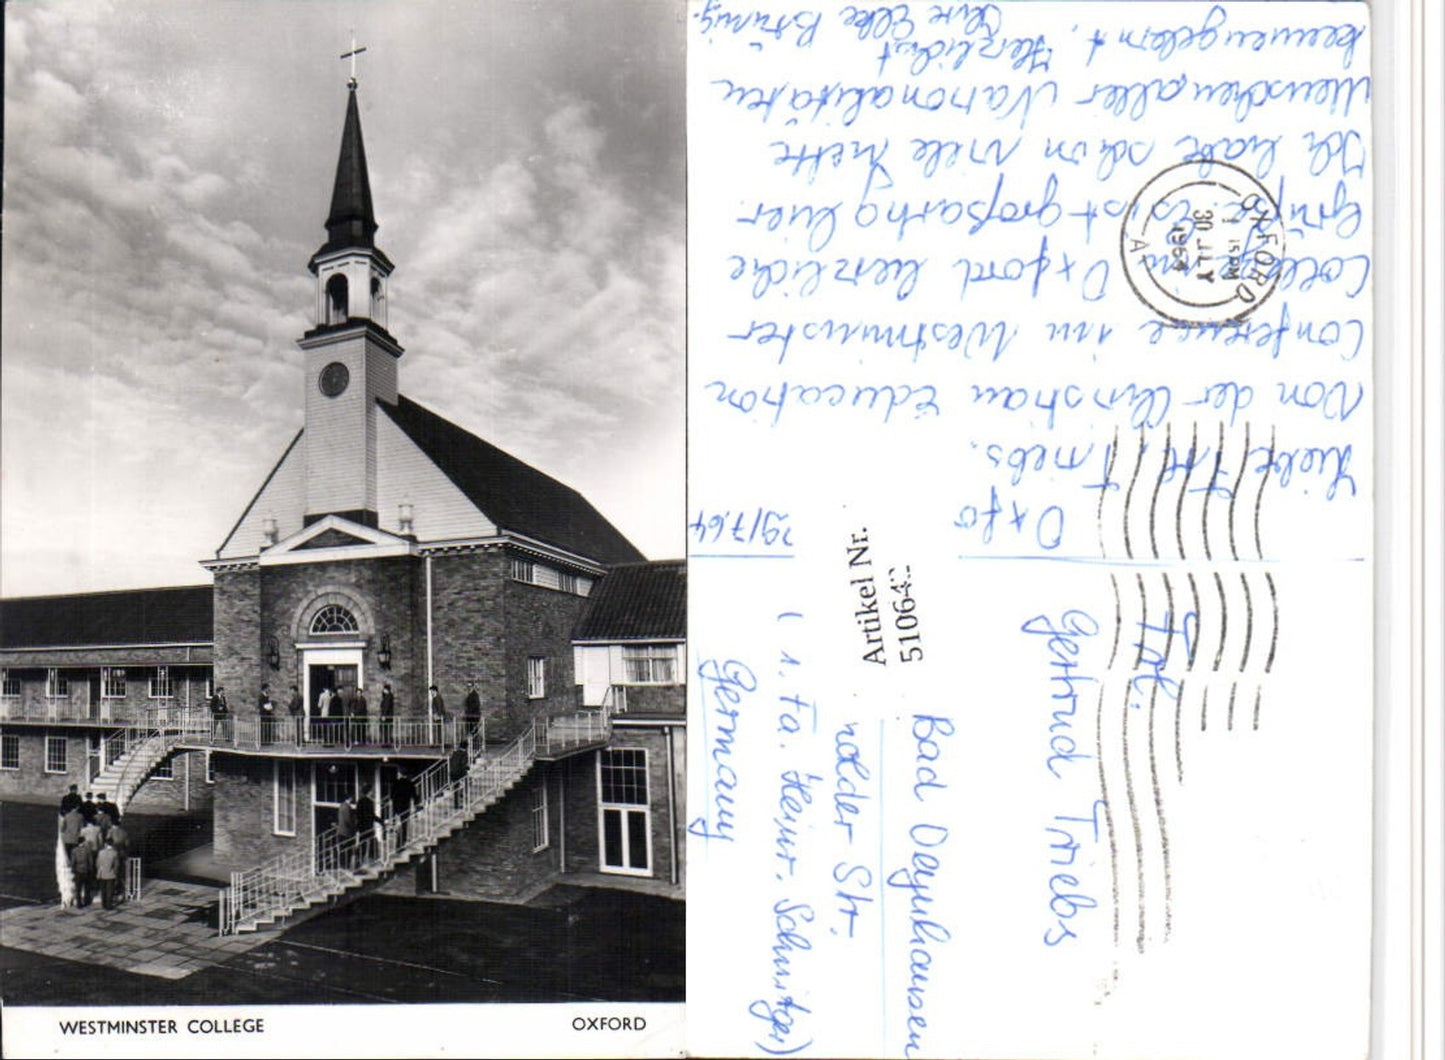 WESTMINSTER COLLEGE
OXFORD
Oxfo
29/7.64
Liebe Frl. Triebs.
Von der Christian Education
Conference im Westminster
College in Oxford herzliche
Grüße. Es ist großartig hier.
Ich habe schon viele nette
Menschen aller Nationalitäten
kennengelernt. Herzlichst
Ihre Elke Brünig.
OXFORD
15 PM
30 JLY
1964
A
Frl.
Gertrud Triebs
Bad Oeynhausen
Str.
( i. Fa. Heinr. Schnitger)
Germany
Artikel Nr.
51064